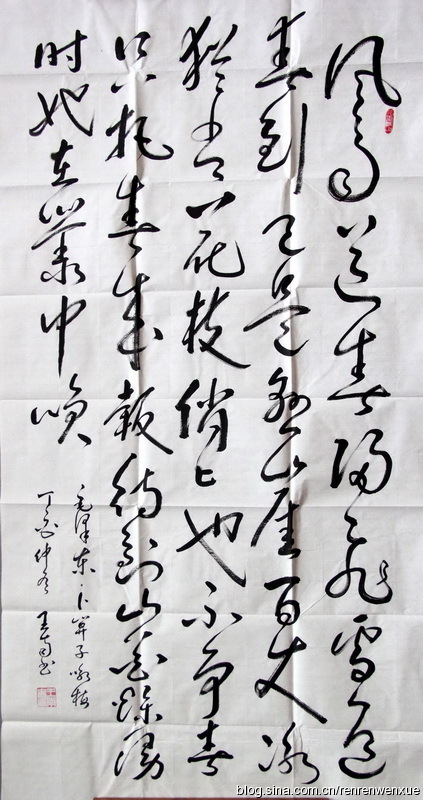 风雨送春归飞雪迎
春到已是悬崖百丈冰
犹有花枝俏〻也不争春
只把春来報待到山花烂漫
时她在叢中咲
毛泽东卜算子咏梅
丁亥仲 王 书
blog.sina.com.cn/renrenwenxue